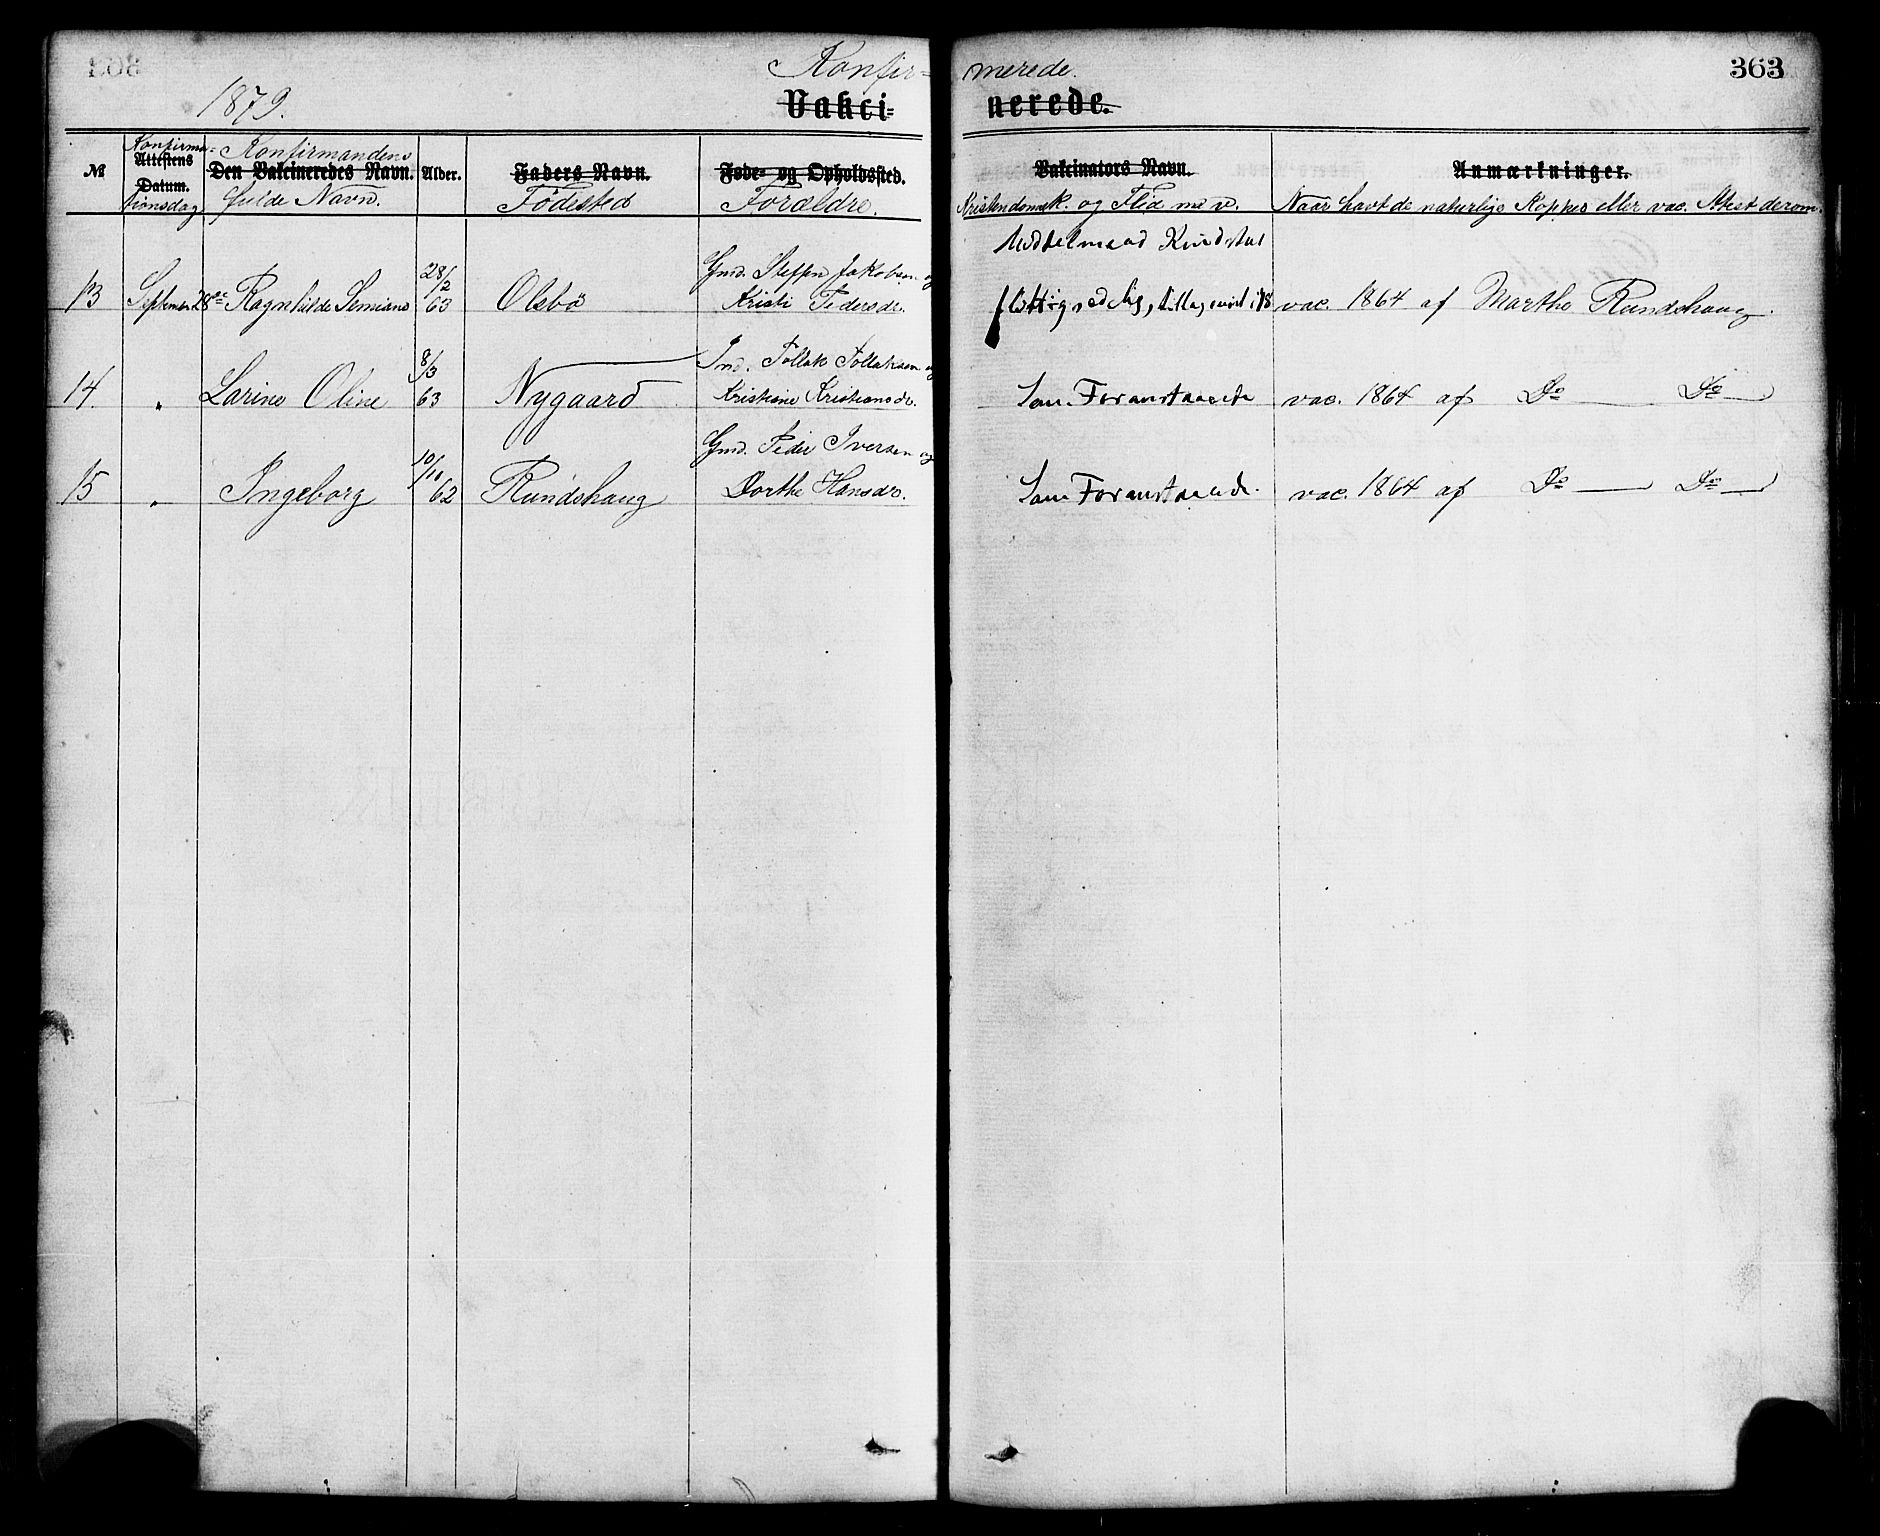 Konfir- merede. 363
1879. Vakci- nerede.
Konfirma- Konfirmandens
№ Attestens Den Vakcineredes Navn. Alder. Faders Navn. Føde- og Opholdssted. Vakcinators Navn. Anmærkninger.
Datum.
tionsdag fulde Navn. Födested Forældre. Kristendomsk. og Flid m. v. Naar havt de naturlige Kopper eller vac. Attest derom.
Middelmaad Kundskab
28/2 Gmd. Steffen Jakobsen og
13 September 28de Ragnhilde Semine 63 Olsbö Kristi Pedersdr. flittig sædelig, vac. 1864 af Marthe Rundshaug.
8/3 Ind. Tollak Tollaksen og
14. " Larine Oline 63 Nygaard Kristiane Kristiansdr. Som Foranstaaende vac. 1864 af Do Do
10/10 Gmd. Peder Iversen og
15 " Ingeborg 62 Rundshaug Dorthe Hansdr. Som Foranstaaende. vac. 1864 af Do Do